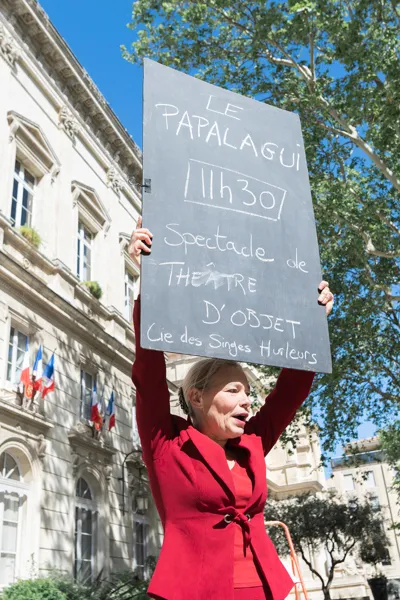 LE
PAPALAGUI
11h30
Spectacle de
THEÂTRE
D'OBJET
Cie des Singes Hurleurs